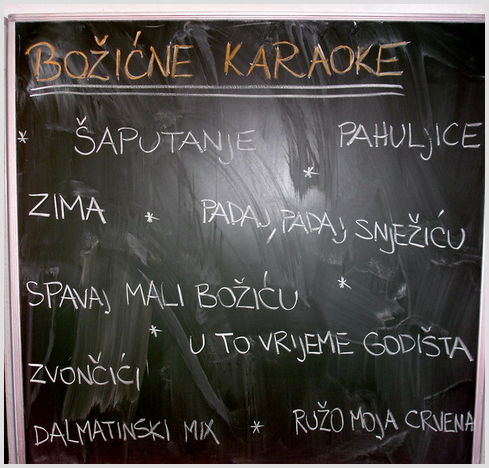 BOŽIĆNE KARAOKE
* ŠAPUTANJE PAHULJICE
*
ZIMA * PADAJ, PADAJ SNJEŽIĆU
SPAVAJ MALI BOŽIĆU *
* U TO VRIJEME GODIŠTA
ZVONČIĆI
DALMATINSKI MIX * RUŽO MOJA CRVENA